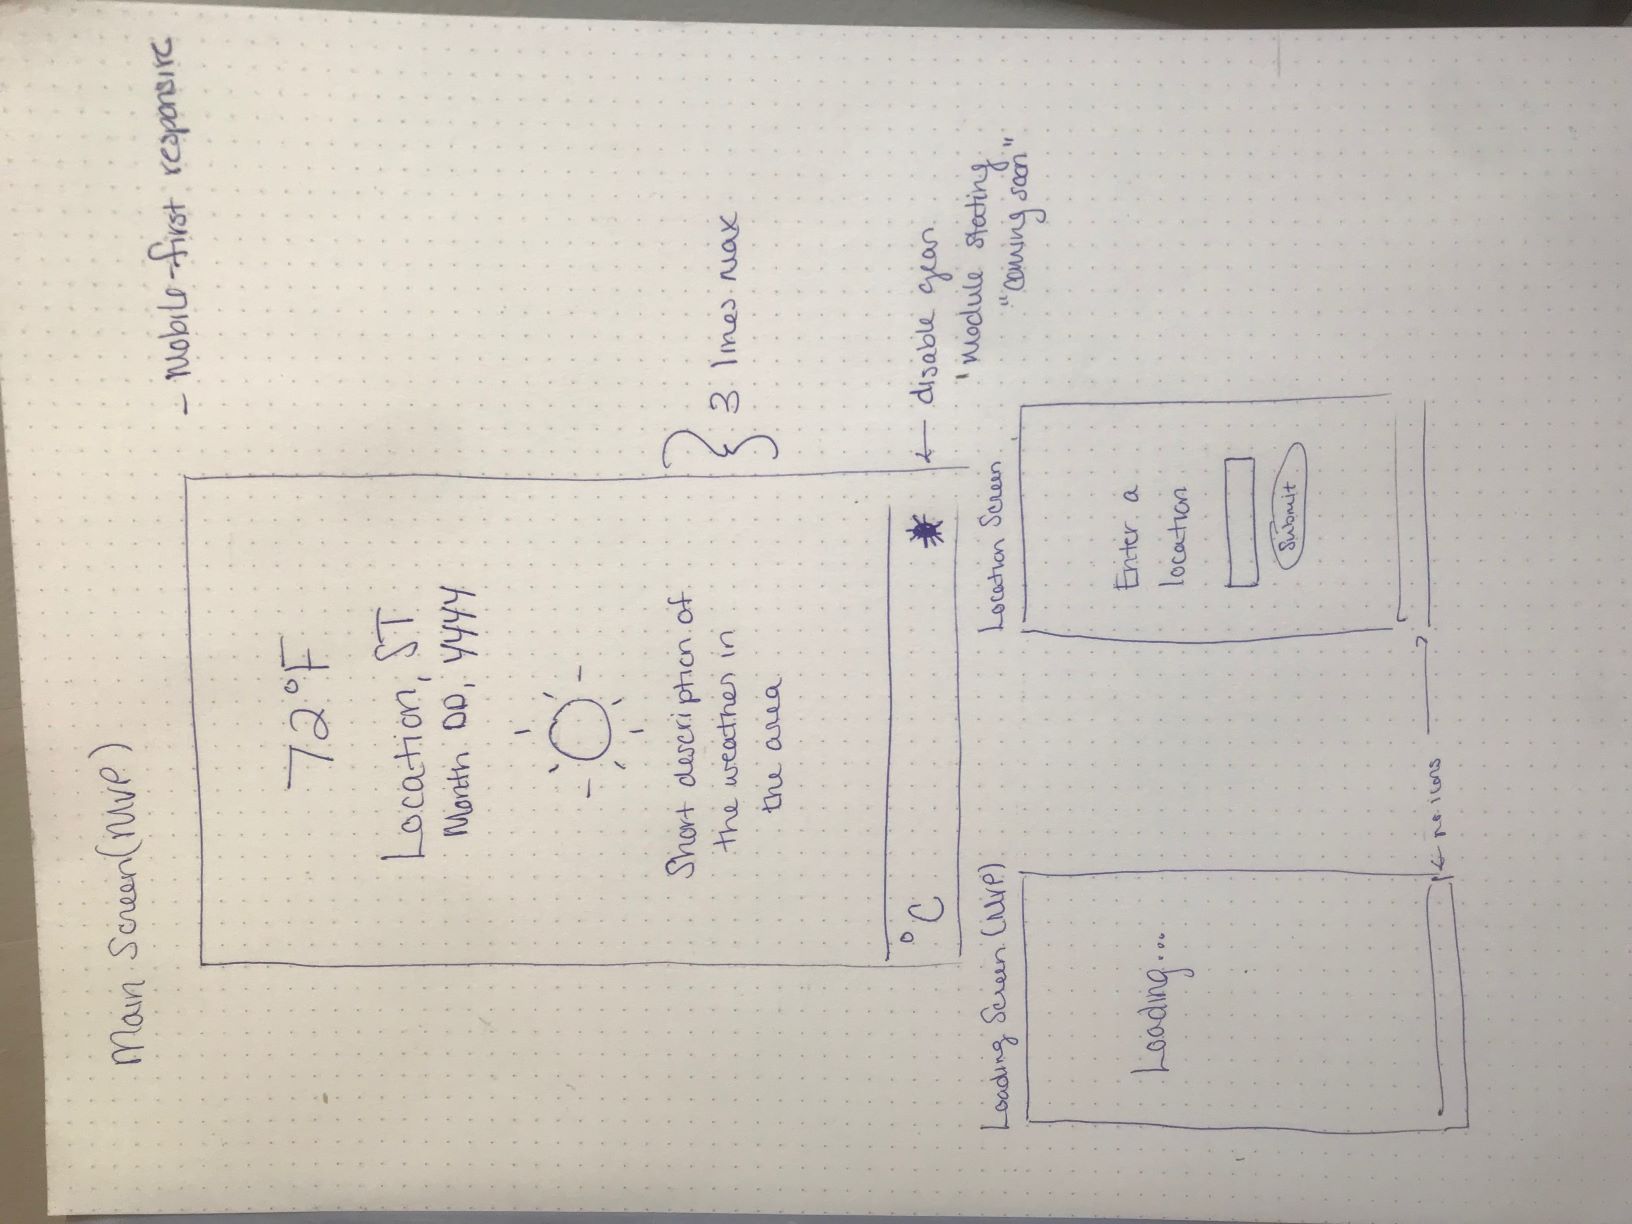 Main Screen (MVP)
- Mobile-first responsive
72°F
Location, ST
Month DD, YYYY
Short description of
the weather in
the area
3 lines max
°C
← disable gear
module stating
"coming soon"
Loading Screen (MVP)
Location Screen
Loading...
Enter a
location
Submit
← no icons →